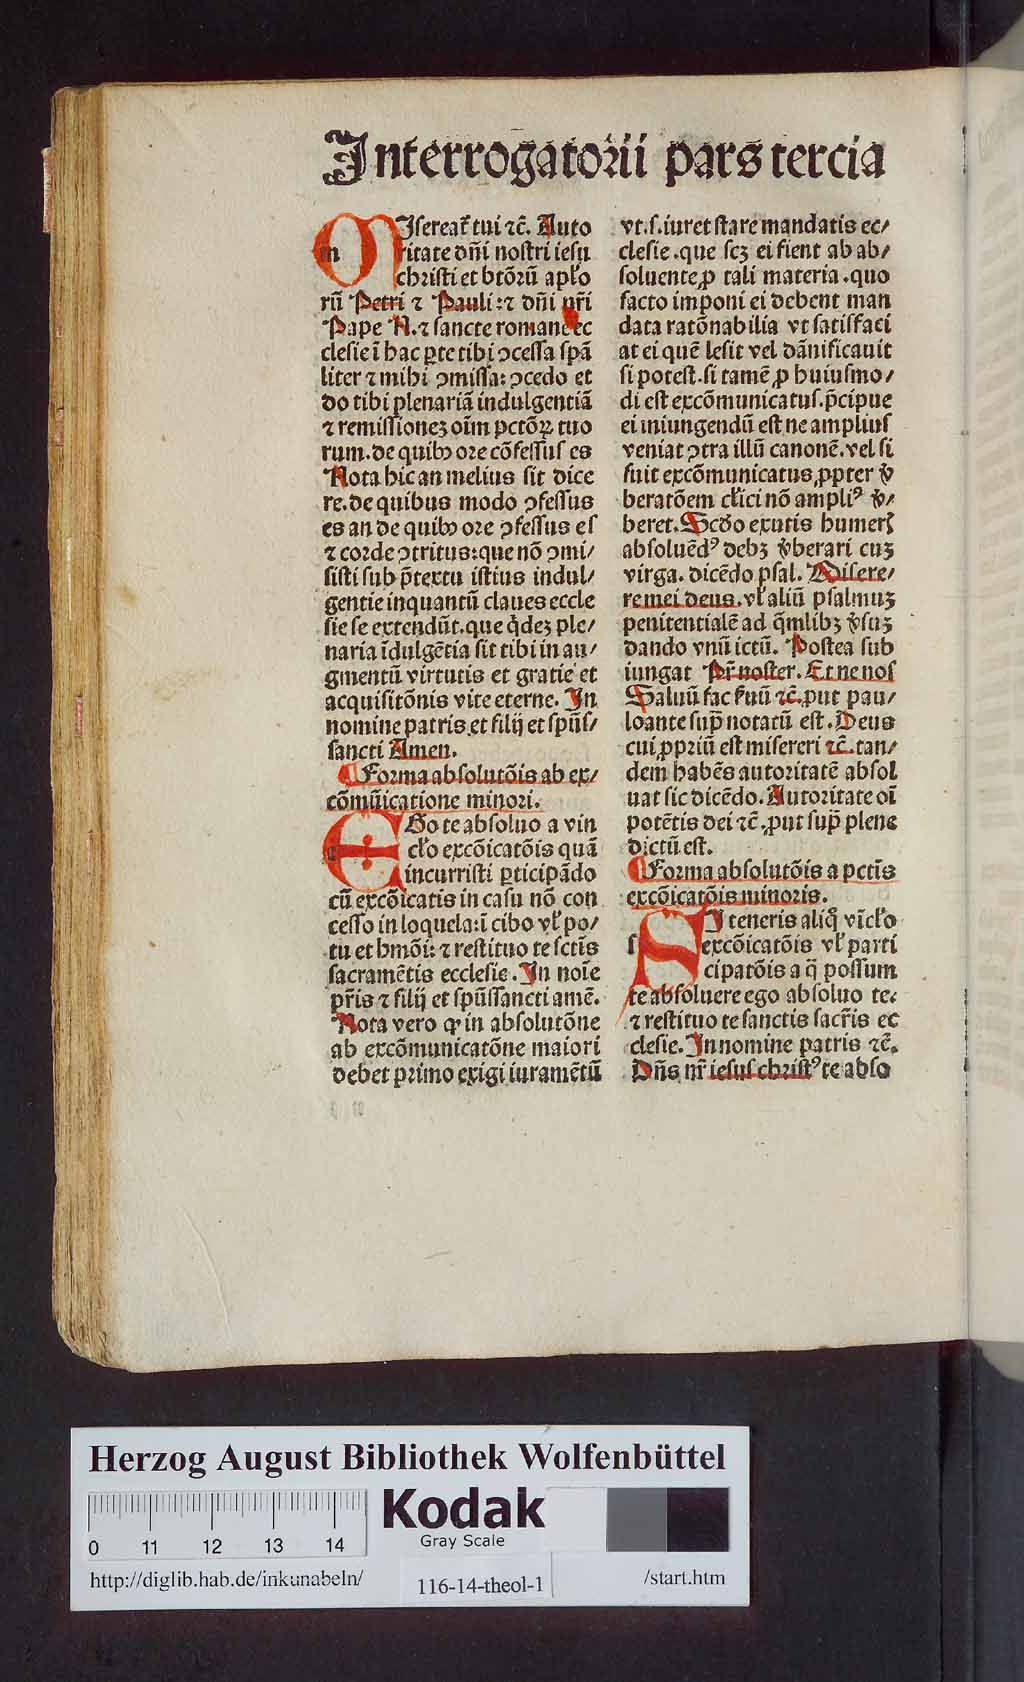 Interrogatorii pars tercia
MIsereat᷑ tui ⁊c̄. Auto
ritate dn̄i nostri iesu
christi et btōrū apl'o
rū Petri ⁊ Pauli: ⁊ dn̄i nr̄i
Pape N. ⁊ sancte romane ec
clesie ī hac ꝑte tibi ꝯcessa spā
liter ⁊ mihi ꝯmissa: ꝯcedo et
do tibi plenariā indulgentiā
⁊ remissionez oīm pctōꝝ tuo
rum. de quibꝰ ore cōfessus es
Nota hic an melius sit dice
re. de quibus modo ꝯfessus
es an de quibꝰ ore ꝯfessus es
⁊ corde ꝯtritus: que nō ꝯmi/
sisti sub p̄textu istius indul/
gentie inquantū claues eccle
sie se extendūt. que q̇dez ple/
naria īdulgētia sit tibi in au/
gmentū virtutis et gratie et
acquisitōnis vite eterne. In
nomine patris et filij et spūs/
sancti Amen.
¶ Forma absolutōis ab ex/
cōmūicatione minori.
EGo te absoluo a vin
cl'o excōicatōis quā
incurristi ꝑticipādo
cū excōicatis in casu nō con
cesso in loquela: ī cibo vl' po/
tu et hmōi: ⁊ restituo te sctīs
sacramētis ecclesie. In noīe
pr̄is ⁊ filij et spūssancti amē.
Nota vero ꝙ in absolutōne
ab excōmunicatōne maiori
debet primo exigi iuramētū
vt. s. iuret stare mandatis ec/
clesie. que scz ei fient ab ab/
soluente ꝓ tali materia. quo
facto imponi ei debent man
data ratōnabilia vt satisfaci
at ei quē lesit vel dānificauit
si potest. si tamē ꝓ huiusmo/
di est excōmunicatus. p̄cipue
ei iniungendū est ne amplius
veniat ꝯtra illū canonē. vel si
fuit excōmunicatus ꝓpter v̓
beratōem cl'ici nō ampliꝰ v̓/
beret. Scd'o exutis humerꝭ
absoluēdꝰ debꝫ v̓berari cuz
virga. dicēdo psal. Misere/
re mei deus. vl' aliū psalmuz
penitentialē ad q̄mlibꝫ v̓suz
dando vnū ictū. Postea sub
iungat Pr̄ noster. Et ne nos
Saluū fac ẜuū ⁊c̄. put pau/
loante sup̄ notatū est. Deus
cui ꝓpriū est misereri ⁊c̄. tan/
dem habēs autoritatē absol
uat sic dicēdo. Autoritate oī
potētis dei ⁊c̄. ꝓut sup̄ plene
dictū est.
¶ Forma absolutōis a pctīs
excōicatōis minoris.
SI teneris aliq̇ vīcl'o
excōicatōis vl' parti
cipatōis a q̄ possum
te absoluere ego absoluo te.
⁊ restituo te sanctis sacr̄is ec
clesie. In nomine patris ⁊c̄.
Dn̄s nr̄ iesus christꝰ te abso
Herzog August Bibliothek Wolfenbüttel
0 11 12 13 14
Kodak
Gray Scale
http://diglib.hab.de/inkunabeln/ 116-14-theol-1 /start.htm